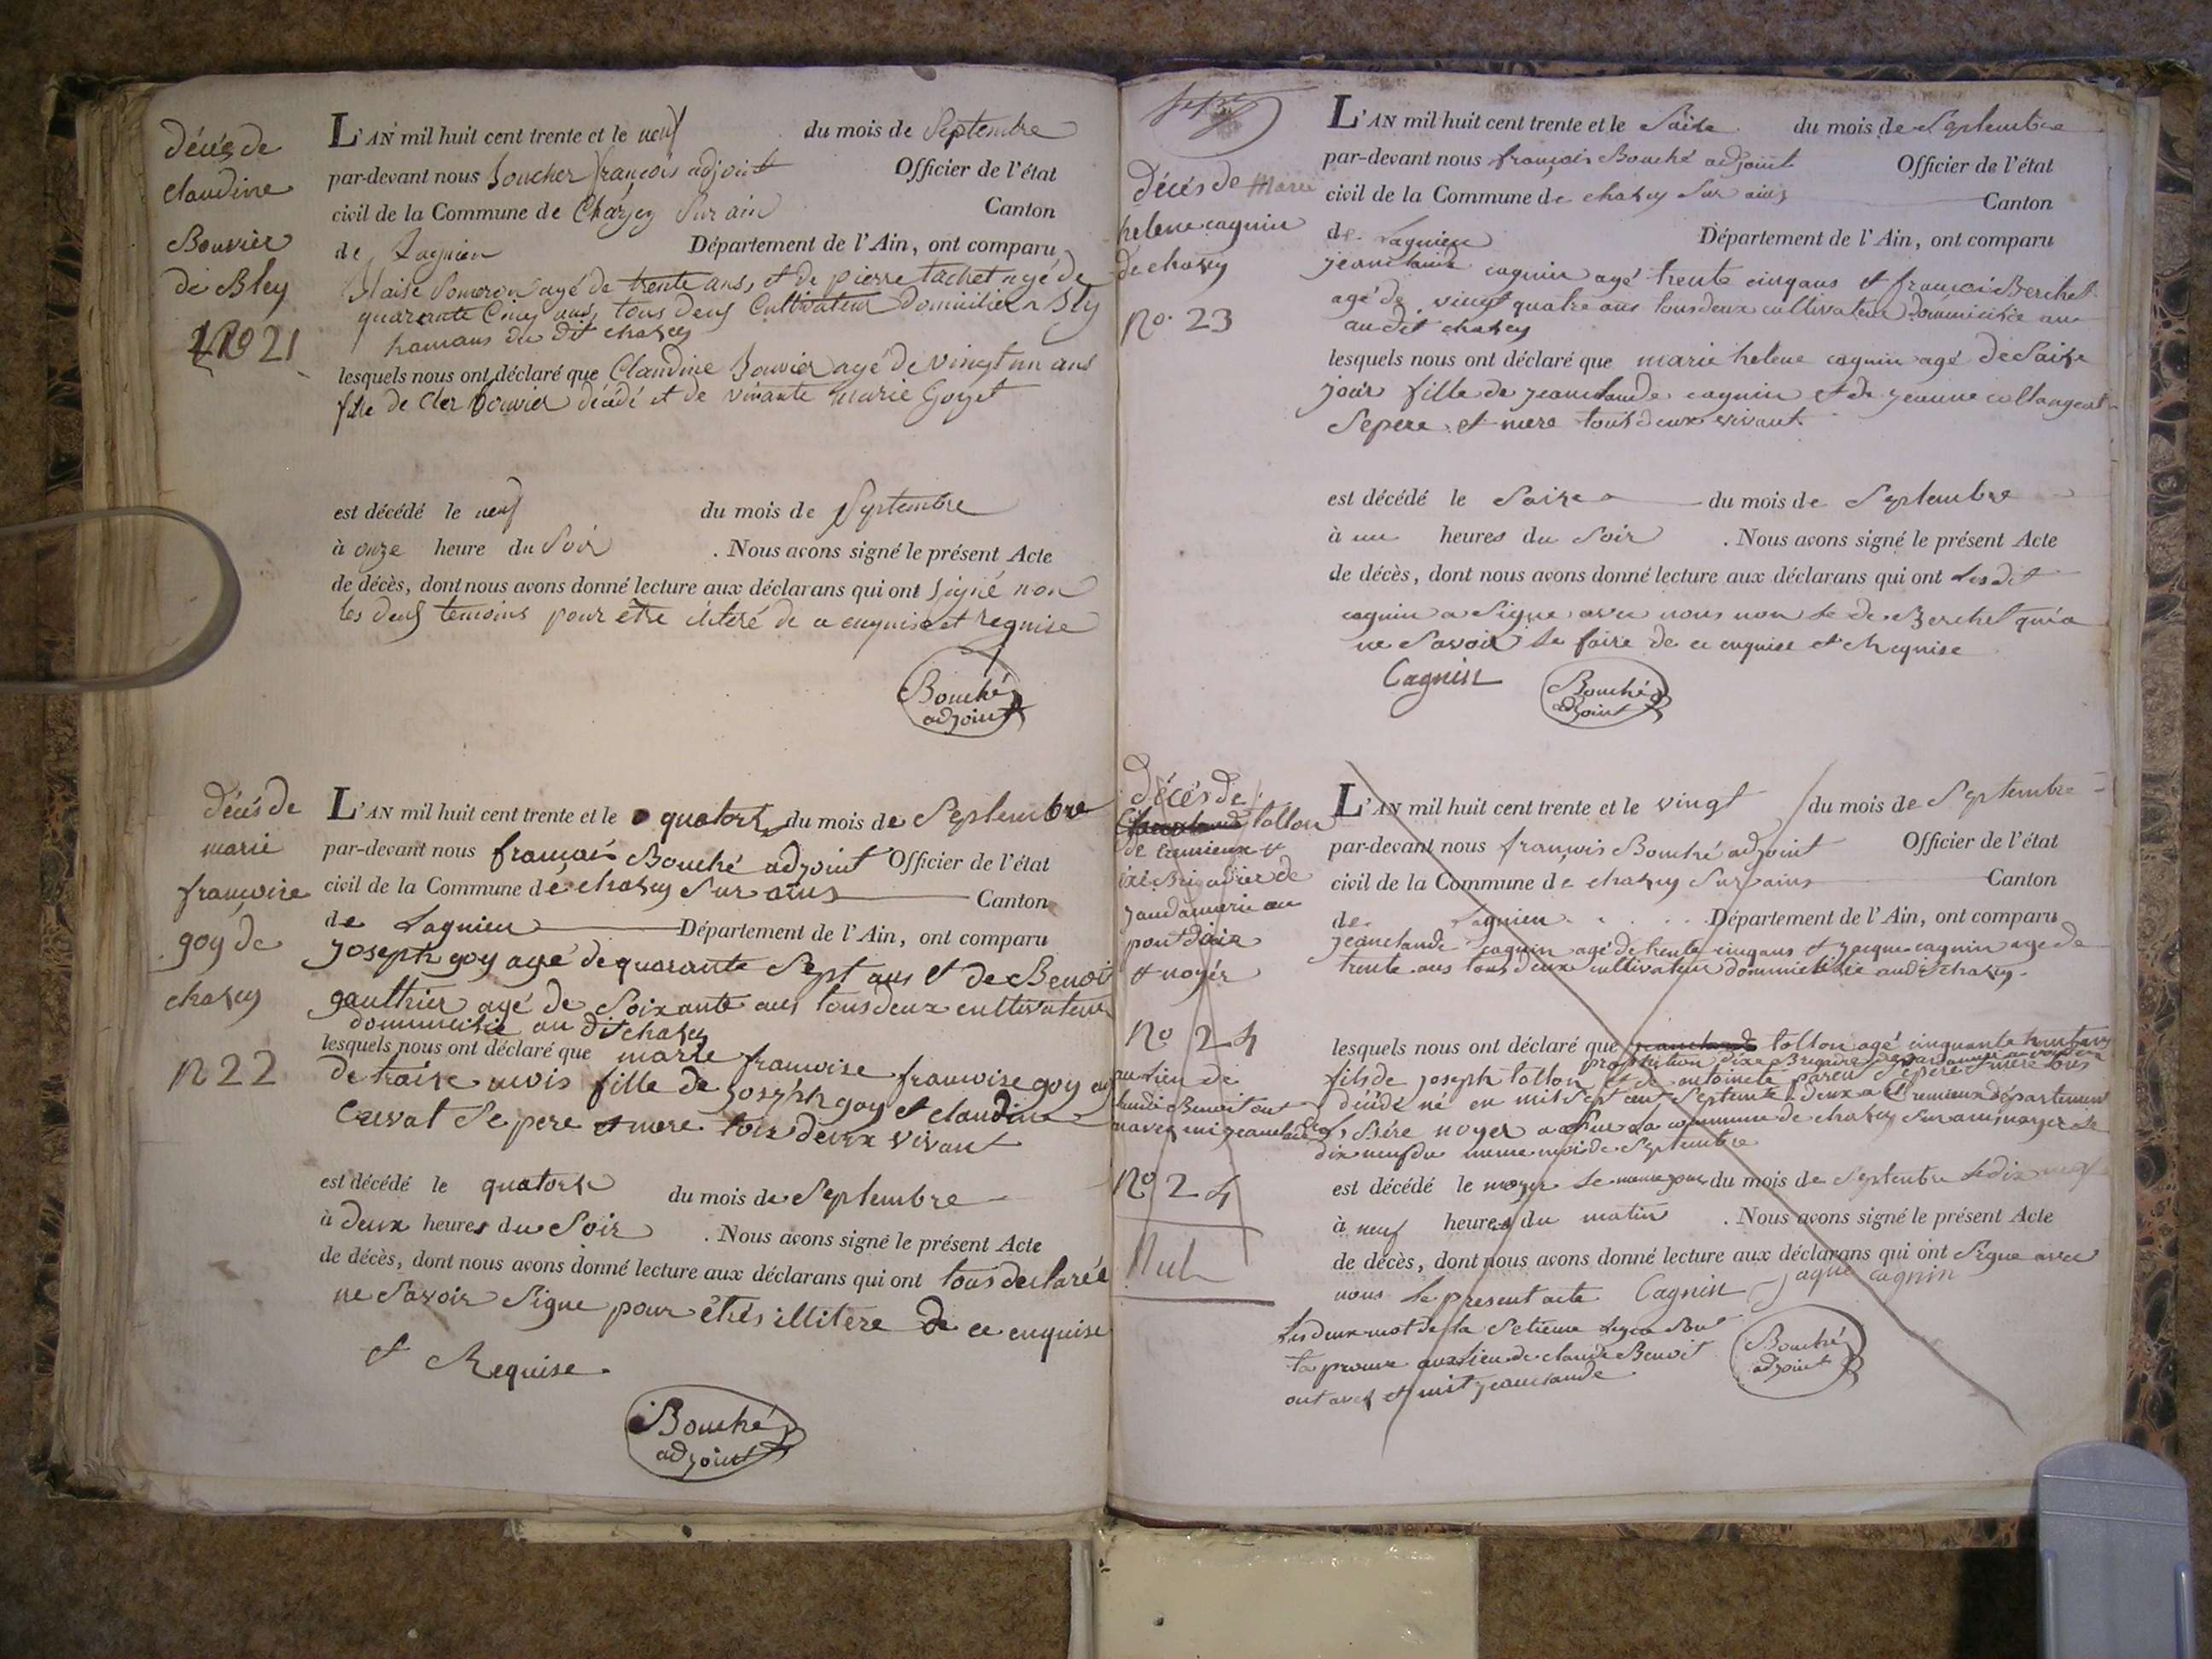 décés de
claudine
Bouvier
de Bley
N° 21
L'AN mil huit cent trente et le neuf du mois de Septembre
par-devant nous Boucher françois adjoint Officier de l'état
civil de la Commune de Chazey Sur ain Canton
de Lagnieu Département de l'Ain, ont comparu
Blaise Someron agé de trente ans, et de pierre tachet agé de
quarante Cinq ans, tous deux Cultivateur Domicilié a Bley
hamaus du dit chazey
lesquels nous ont déclaré que Claudine Bouvier agé de vingt un ans
fille de Cler Bouvier décédé et de vivante Marie Goyet
est décédé le neuf du mois de Septembre
à onze heure du Soir . Nous avons signé le présent Acte
de décès, dont nous avons donné lecture aux déclarans qui ont signé non
les deux temoins pour être de ce enquise et requise
Bouché
adjoint
décés de
marie
françoise
goy de
chazey
n 22
L'AN mil huit cent trente et le quatorze du mois de Septembre
par-devant nous françois Bouché adjoint Officier de l'état
civil de la Commune de chazey Sur ains Canton
de Lagnieu Département de l'Ain, ont comparu
Joseph goy agé de quarante Sept ans et de Benoit
gauthier agé de Soixante ans tous deux cultivateur
dommicilié au dit chazey
lesquels nous ont déclaré que marie francoise francoise goy
de traize mois fille de Joseph goy et claudine
Cuvat Se pere et mere tous deux vivant
est décédé le quatorze du mois de Septembre
à deux heures du Soir . Nous avons signé le présent Acte
de décès, dont nous avons donné lecture aux déclarans qui ont tous declarée
ne Savoir Signe pour êtrés illitere de ce enquise
et Requise.
Bouché
adjoint
décés de Marie
helene cagnin
de chazey
No. 23
L'AN mil huit cent trente et le Saize du mois de Septembre
par-devant nous françois Bouché adjoint Officier de l'état
civil de la Commune de chazey Sur ains Canton
de Lagnieu Département de l'Ain, ont comparu
jeanclaude cagnin agé trente cinq ans et francois Berchet
agé de vingt quatre ans tous deux cultivateur dommicilié au
au dit chazey
lesquels nous ont déclaré que marie helene cagnin agé de Saize
jour fille de jeanclaude cagnin et de jeanne collangeat
Se pere et mere tous deux vivant
est décédé le Saize du mois de Septembre
à un heures du Soir . Nous avons signé le présent Acte
de décès, dont nous avons donné lecture aux déclarans qui ont Les dit
cagnin a Signe avec nous non le de Berchet qui a
ne Savoir le faire de ce enquise et Requise
Cagnin
Bouché
adjoint
Décés de
tollon
de cremieux et
éxé Brigadier de
jandamerie au
pont dain
et noyér
No 24
au lieu de
claude Benoit ont
No 24
Nul
L'AN mil huit cent trente et le vingt du mois de Septembre
par-devant nous françois Bouché adjoint Officier de l'état
civil de la Commune de chazey Sur ains Canton
de Lagnieu Département de l'Ain, ont comparu
jeanclaude cagnin agé de trente cinq ans et jacque cagnin agé de
trente ans tous deux cultivateur dommicilié au dit chazey.
lesquels nous ont déclaré que tollon agé cinquante huit ans
fils de joseph tollon et de antoinete Se pere et mere tous
décédé né en mil Sept cent Septente deux a Cremieux département
noyer Sur La commune de chazey Sur ains noyer le
dix neuf du meme moi de Septembre
est décédé le noyer le meme jour du mois de Septembre Le dix neuf
à neuf heures du matin . Nous avons signé le présent Acte
de décès, dont nous avons donné lecture aux déclarans qui ont Signe avec
nous Le present acte Cagnin jaque cagnin
Les deux mot de la Setieme ligne Sont
aux lieu de claude Benoit
et mit jeanclaude
Bouché
adjoint